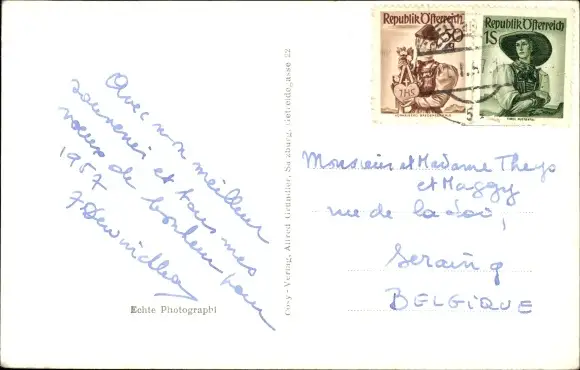 Avec mon meilleur
souvenir et tous mes
vœux de bonheur pour
1957
Echte Photographi
Cosy-Verlag, Alfred Gründler, Salzburg, Getreidegasse 22
Republik Österreich
Republik Österreich
1S
Monsieur et Madame Theys
et Maggy
rue de la Loi,
Seraing
BELGIQUE